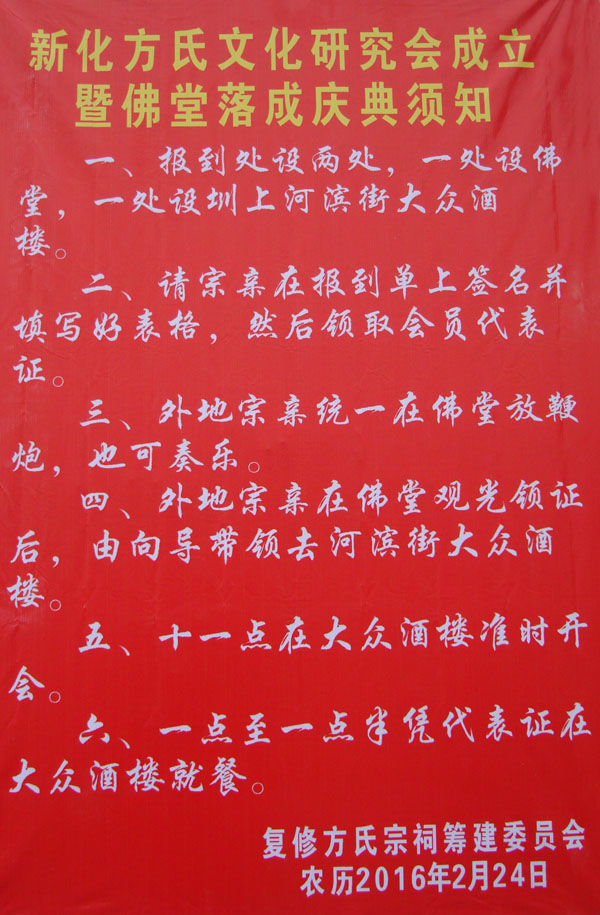 新化方氏文化研究会成立
暨佛堂落成庆典须知
一、报到处设两处，一处设佛
堂，一处设圳上河滨街大众酒
楼。
二、请宗亲在报到单上签名并
填写好表格，然后领取会员代表
证。
三、外地宗亲统一在佛堂放鞭
炮，也可奏乐。
四、外地宗亲在佛堂观光领证
后，由向导带领去河滨街大众酒
楼。
五、十一点在大众酒楼准时开
会。
六、一点至一点半凭代表证在
大众酒楼就餐。
复修方氏宗祠筹建委员会
农历2016年2月24日